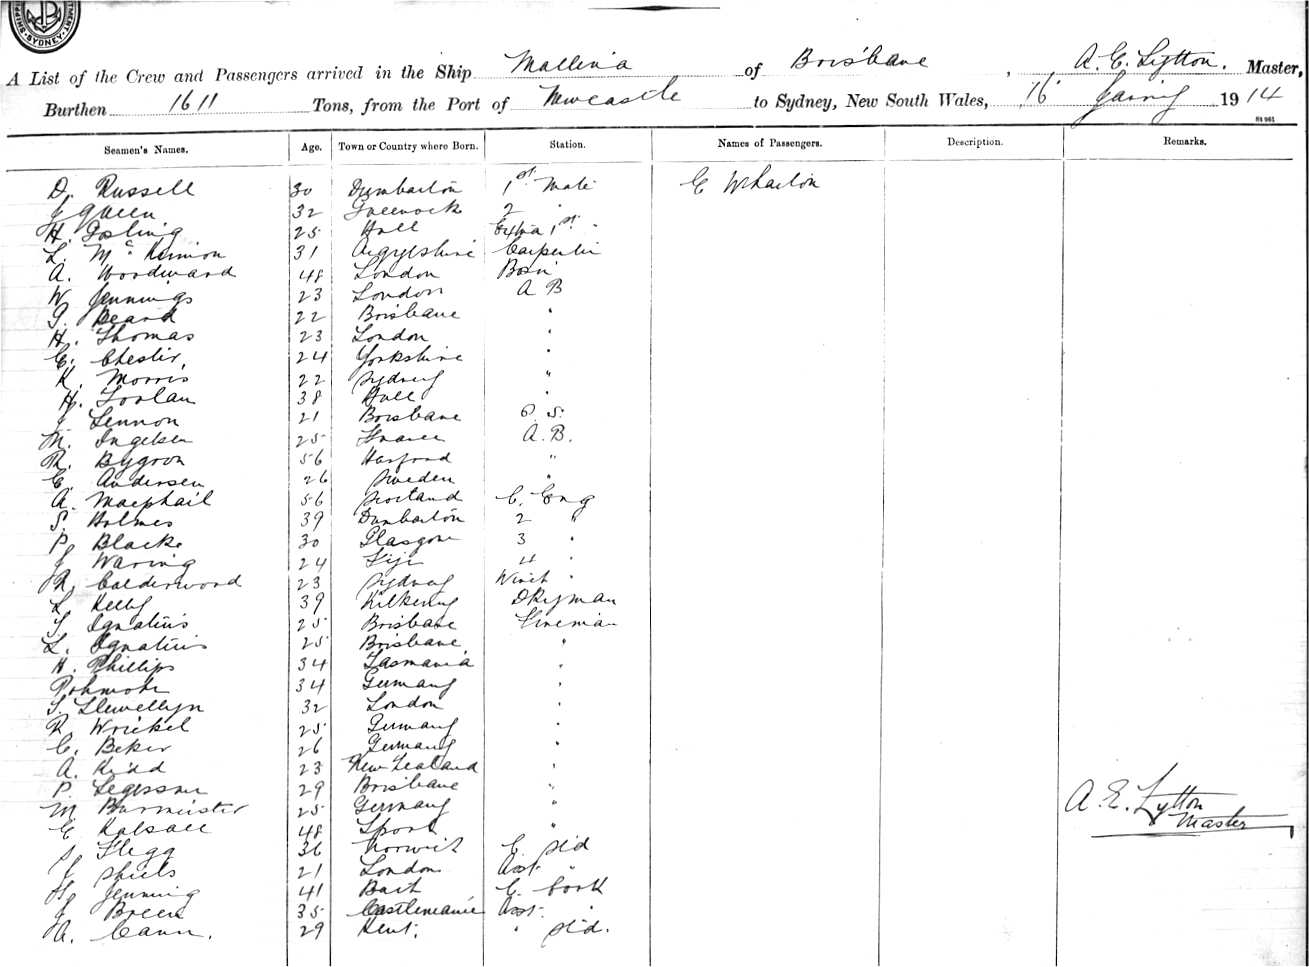 SHIPPING
SYDNEY
A List of the Crew and Passengers arrived in the Ship Mallina of Brisbane, A. E. Lytton. Master,
Burthen 1611 Tons, from the Port of Newcastle to Sydney, New South Wales, 16 1914
Seamen's Names. Age. Town or Country where Born. Station. Names of Passengers. Description. Remarks.
D. Russell 30 Dumbarton 1st Mate E Wharton
J Queen 32 Greenock 2 "
H. Gosling 25 Hull Extra 1st "
L. McKinnon 31 Argyleshire Carpenter
A. Woodward 48 London Bosn
W Jennings 23 London A B
G. Beard 22 Brisbane "
H. Thomas 23 London "
C. Chester, 24 Yorkshire "
K. Morris 22 Sydney "
H. 38 Hull "
J Lennon 21 Brisbane O. S.
M. Ingelsen 25 A. B.
R. Bygron 56 Harford "
C. Andersen 26 Sweden "
A. Macphail 56 Scotland C. Eng
S. Holmes 39 Dumbarton 2 "
P. Blacke 30 Glasgow 3 "
J Waring 24 Fiji 4 "
R. Calderwood 23 Sydney Winch "
L. Kelly 39 Kilkenny Dkyman
T. Ignatius 25 Brisbane Fireman
L. Ignatius 25 Brisbane "
H. Phillips 34 Tasmania "
34 Germany "
T. Llewellyn 32 London "
R. Wrickel 25 Germany "
C. Beker 26 Germany "
A. Kidd 23 New Zealand "
P. 29 Brisbane "
M. Burmeister 25 Germany "
E 48 "
J. Flegg 36 Norwich C. Std
J Shiels 21 London Asst "
H. Jenning 41 Bath C. Cook
J Breen 35 Castlemaine Asst. "
A. Cann. 29 Kent. " Std.
A. E. Lytton
Master